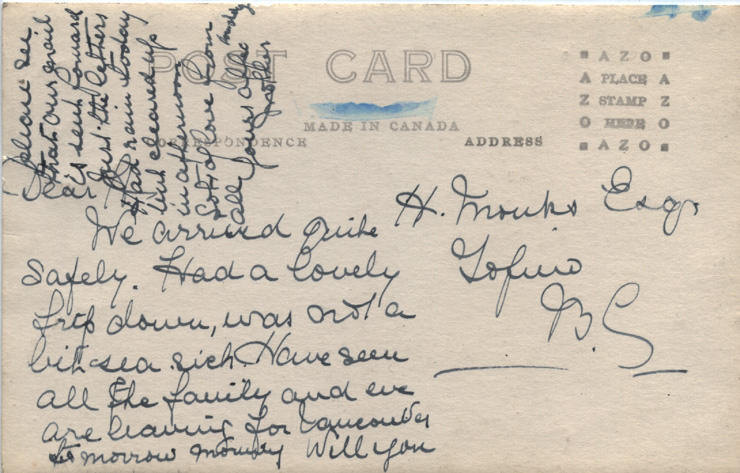 POST CARD
MADE IN CANADA
CORRESPONDENCE
ADDRESS
AZO
A PLACE A
Z STAMP Z
O HERE O
AZO
Dear
We arrived quite
safely. Had a lovely
trip down, was not a
bit sea sick. Have seen
all the family and we
are leaving for Vancouver
to morrow morning Will you
please see
that our mail
is sent forward
just the letters
Had rain today
but cleared up
in afternoon
Lots of love from
all Yours affec
Mother
H. Monks Esq.
Tofino
B.C.